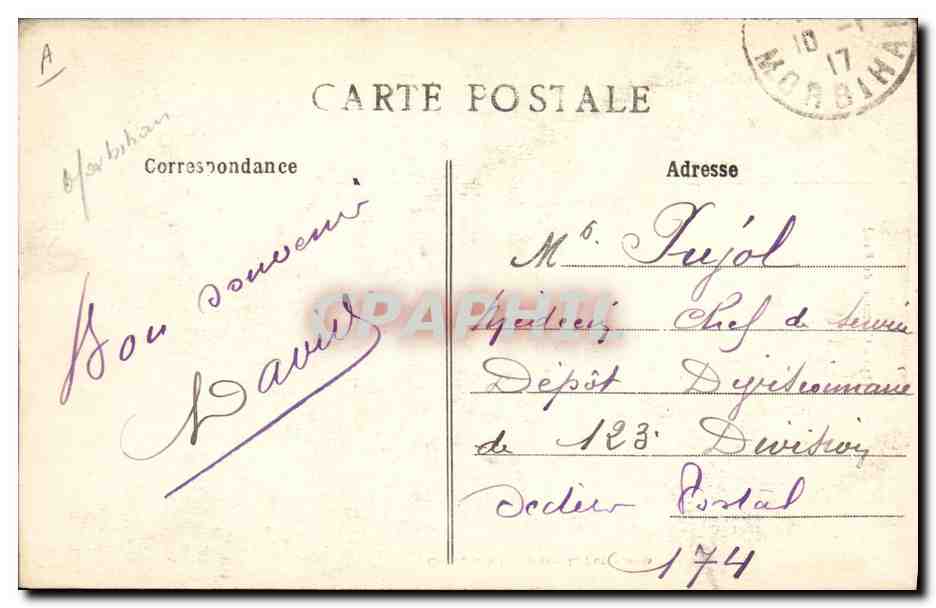 A
10 -1
17
MORBIHAN
CARTE POSTALE
Morbihan
Correspondance
Adresse
Bon souvenir
David
Mr. Pujol
Médecin Chef de Service
Dépôt Divisionnaire
de 123e Division
Secteur Postal
174
CPAPHIL